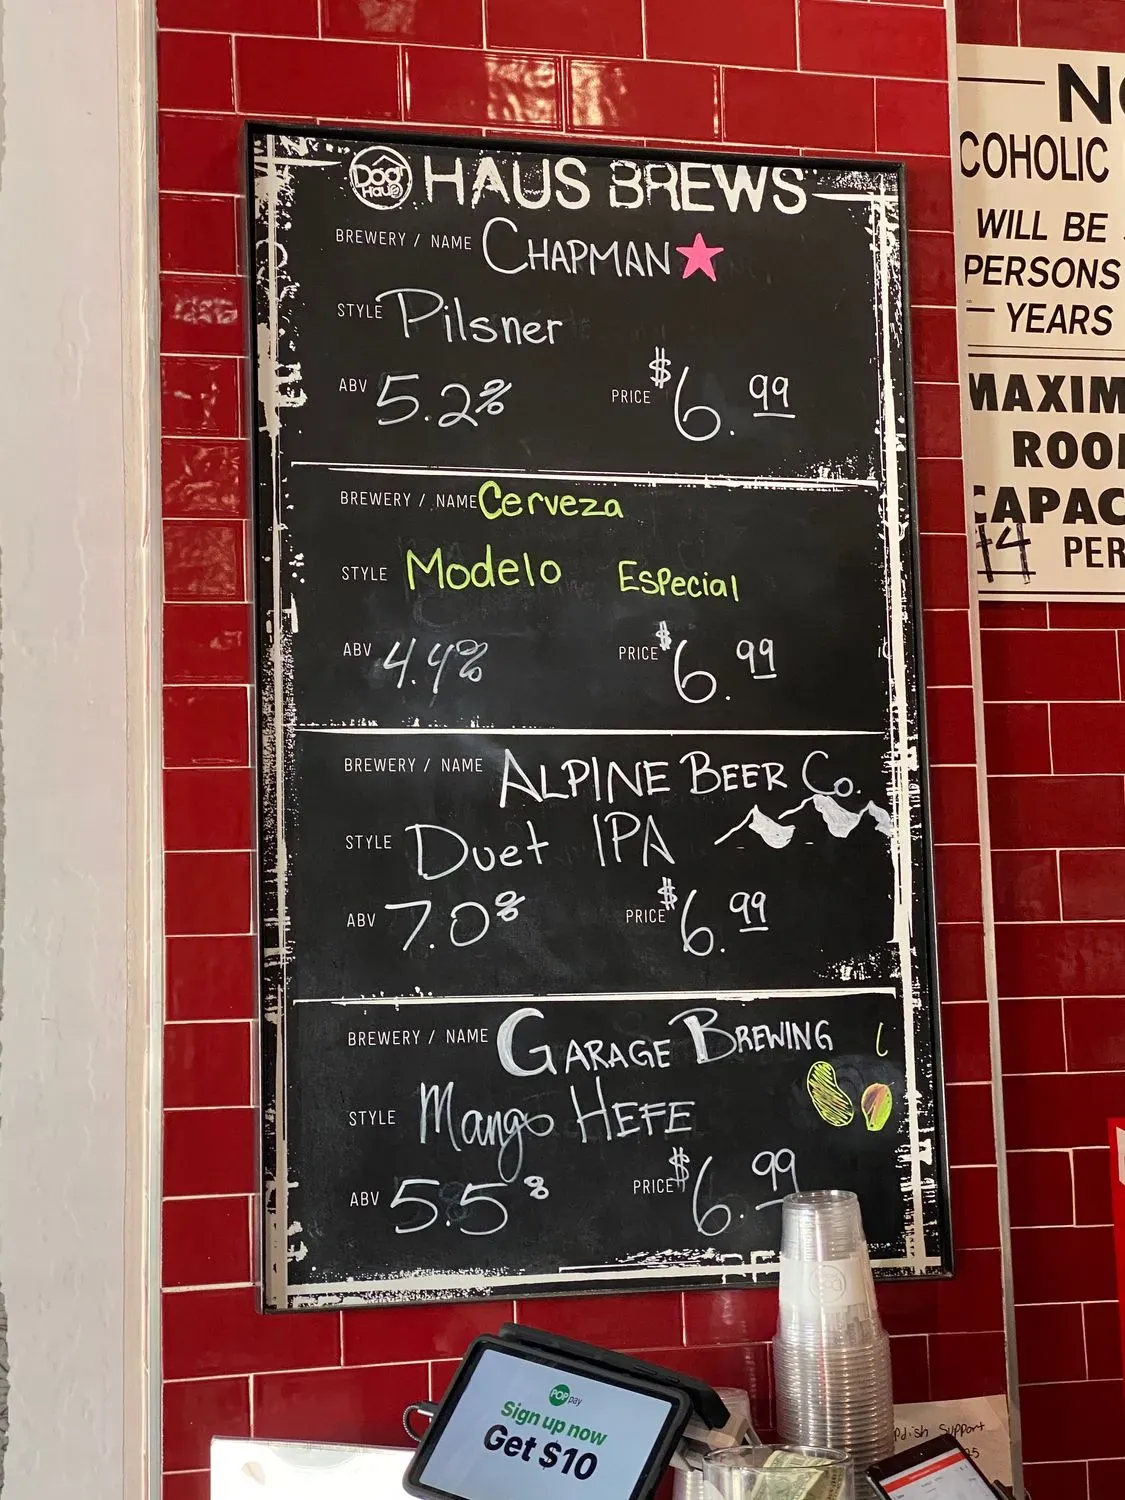 Dog Haus HAUS BREWS
BREWERY / NAME CHAPMAN
STYLE Pilsner
ABV 5.2% PRICE $6.99
BREWERY / NAME Cerveza
STYLE Modelo Especial
ABV 4.4% PRICE $6.99
BREWERY / NAME ALPINE BEER Co.
STYLE Duet IPA
ABV 7.0% PRICE $6.99
BREWERY / NAME GARAGE BREWING
STYLE Mango HEFE
ABV 5.5% PRICE $6.99
COHOLIC
WILL BE
PERSONS
YEARS
MAXIM
ROO
CAPAC
PER
POP pay
Sign up now
Get $10
Support